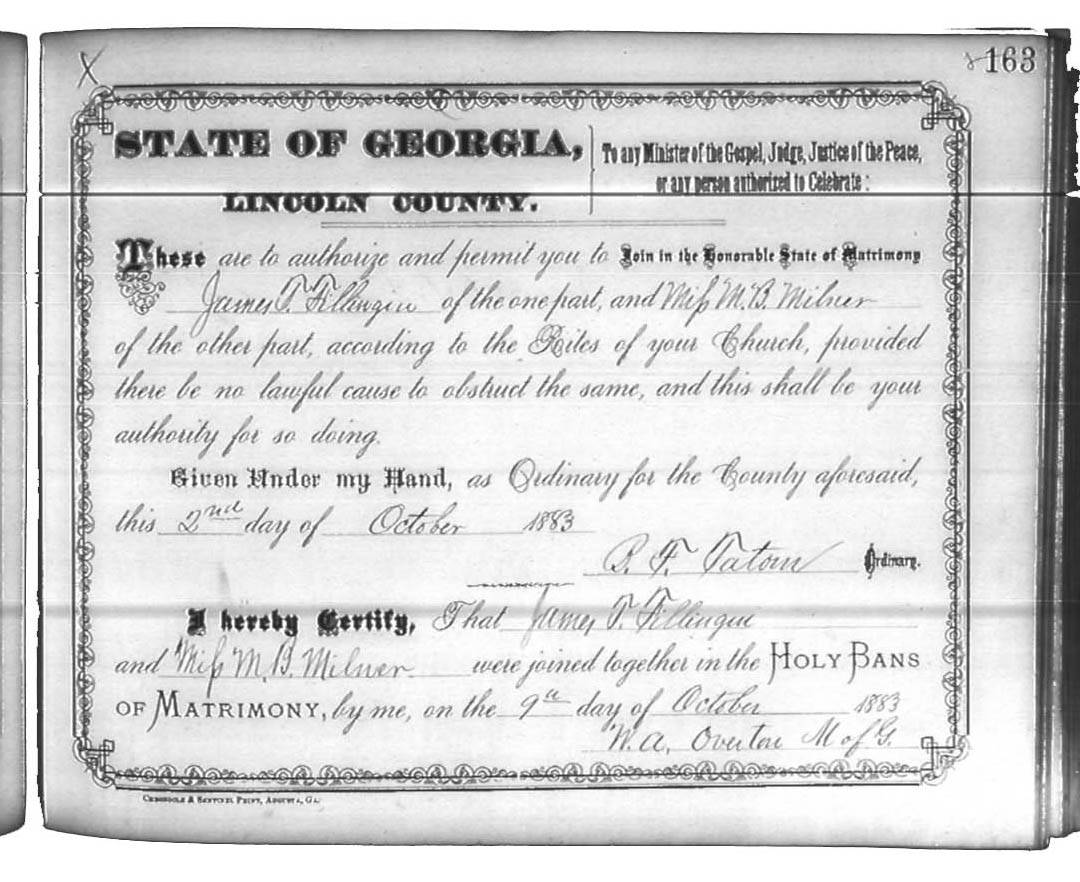 X
163
STATE OF GEORGIA,
LINCOLN COUNTY.
To any Minister of the Gospel, Judge, Justice of the Peace,
or any person authorized to Celebrate:
These are to authorize and permit you to Join in the Honorable State of Matrimony
James T. Fillingin of the one part, and Miss M. B. Milner
of the other part, according to the Rites of your Church, provided
there be no lawful cause to obstruct the same, and this shall be your
authority for so doing.
Given Under my Hand, as Ordinary for the County aforesaid,
this 2nd day of October 1883
B. F. Tatom Ordinary.
I hereby Certify, That James T. Fillingin
and Miss M. B. Milner were joined together in the HOLY BANS
OF MATRIMONY, by me, on the 9th day of October 1883
W. A. Overton M of G.
CHRONICLE & SENTINEL PRINT, AUGUSTA, GA.